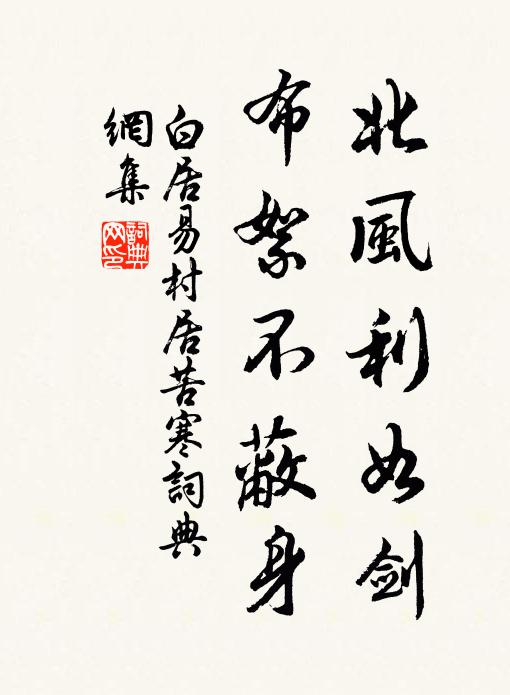 北風利如剑
布絮不蔽身
白居易村居苦寒詞典
網集
詞典
网印